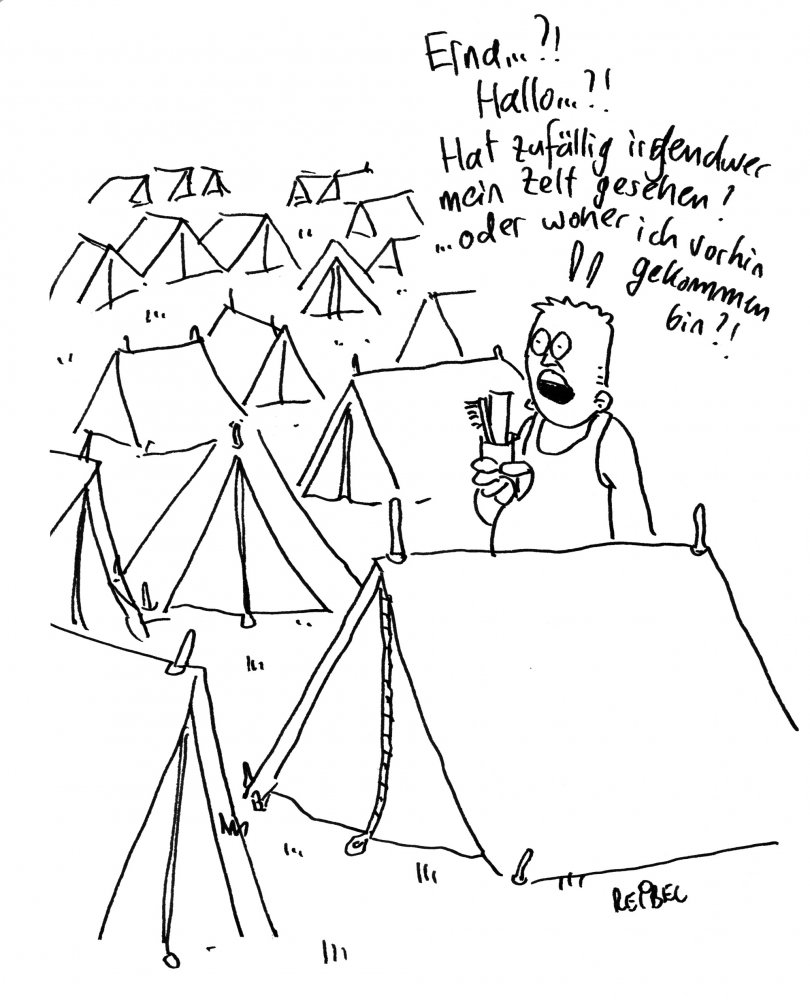 Erna...?!
Hallo...?!
Hat zufällig irgendwer
mein Zelt gesehen?
...oder woher ich vorhin
gekommen
bin?!
REIBEL